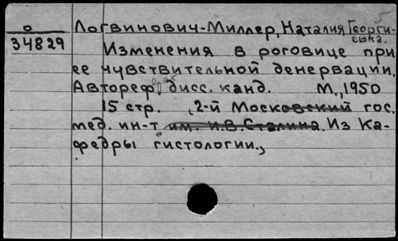 о
34829
Логвинович-Миллер, Наталия Георги-
евна.
Изменения в роговице при
ее чувствительной денервации.
Автореф. дисс. канд. М., 1950
15 стр. 2-й Московский гос.
мед. ин-т им. И.В. Сталина. Из Ка-
федры гистологии.,